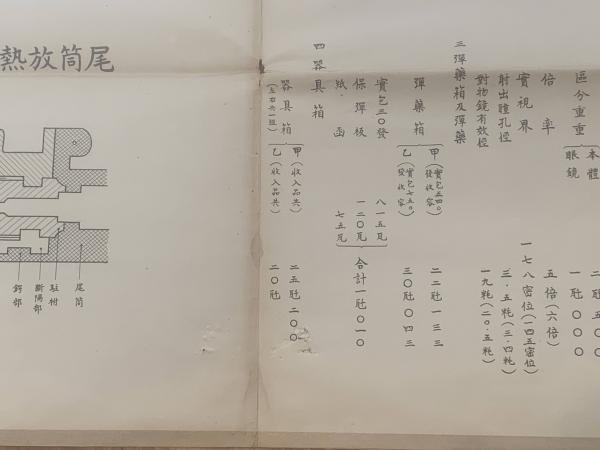 區分重量
本體 二瓩五〇〇
眼鏡 一瓩〇〇〇
倍率 五倍(六倍)
實視界 一七八密位(一四五密位)
射出瞳孔徑 三.五粍(三.四粍)
對物鏡有效徑 一九粍(二〇.五粍)
三 彈藥箱及彈藥
彈藥箱
甲(實包五四〇發收容) 二二瓩一三三
乙(實包七五〇發收容) 三〇瓩〇四三
實包三〇發 八一五瓦
保彈板 一二〇瓦
紙函 七五瓦
合計一瓩〇一〇
四 器具箱
器具箱
(左右共一組)
甲(收入品共) 二五瓩二〇〇
乙(收入品共) 二〇瓩
尾筒放熱
尾筒
駐栓
斷隔部
鍔部